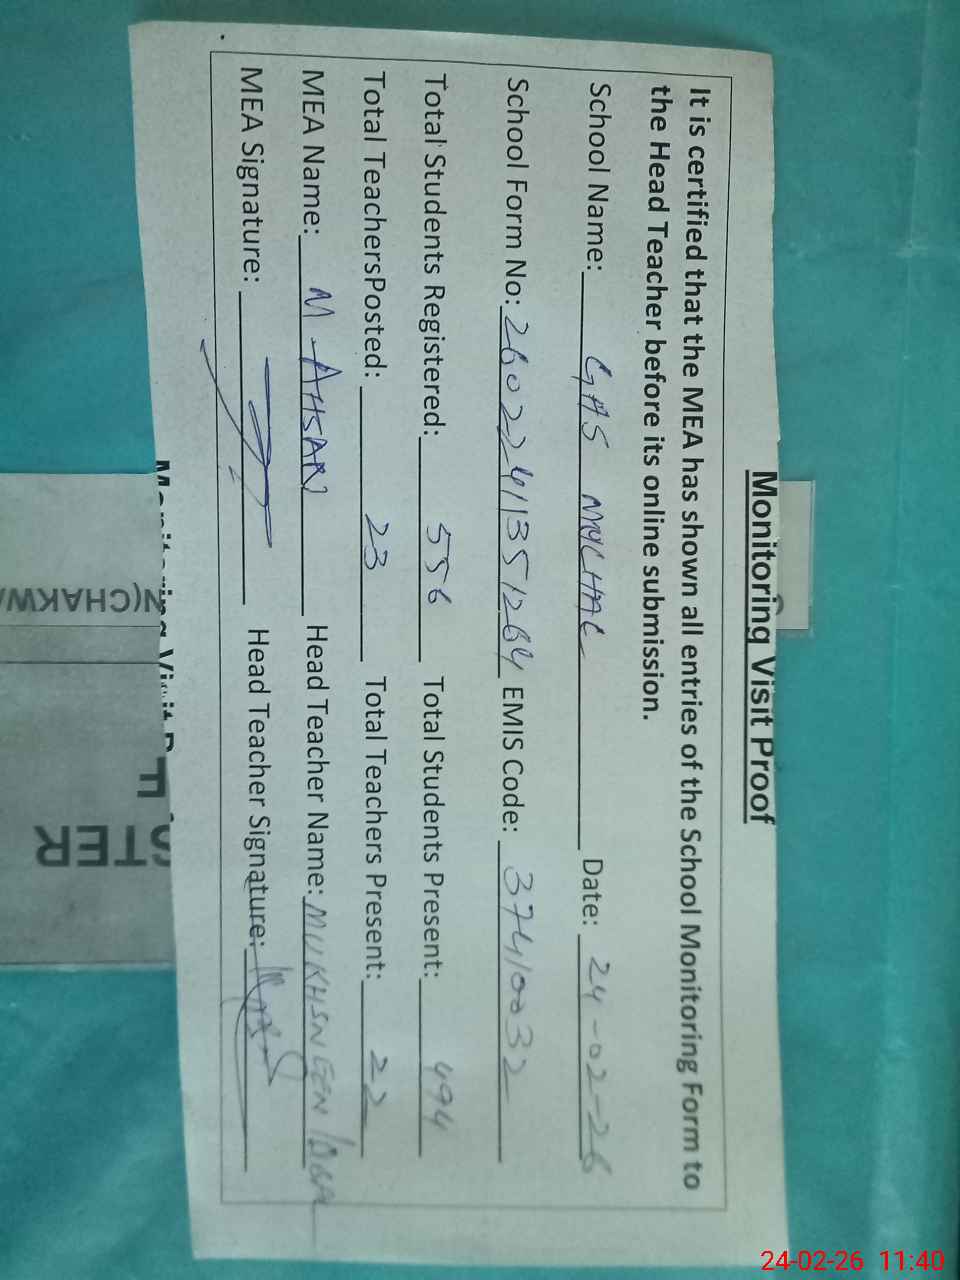 Monitoring Visit Proof
It is certified that the MEA has shown all entries of the School Monitoring Form to
the Head Teacher before its online submission.
School Name: GHS Date: 24-02-26
School Form No: 26022411351264 EMIS Code: 37410032
Total Students Registered: 556 Total Students Present: 494
Total TeachersPosted: 23 Total Teachers Present: 22
MEA Name: M Head Teacher Name:
MEA Signature: Head Teacher Signature:
N(CHAKW
STER
24-02-26 11:40